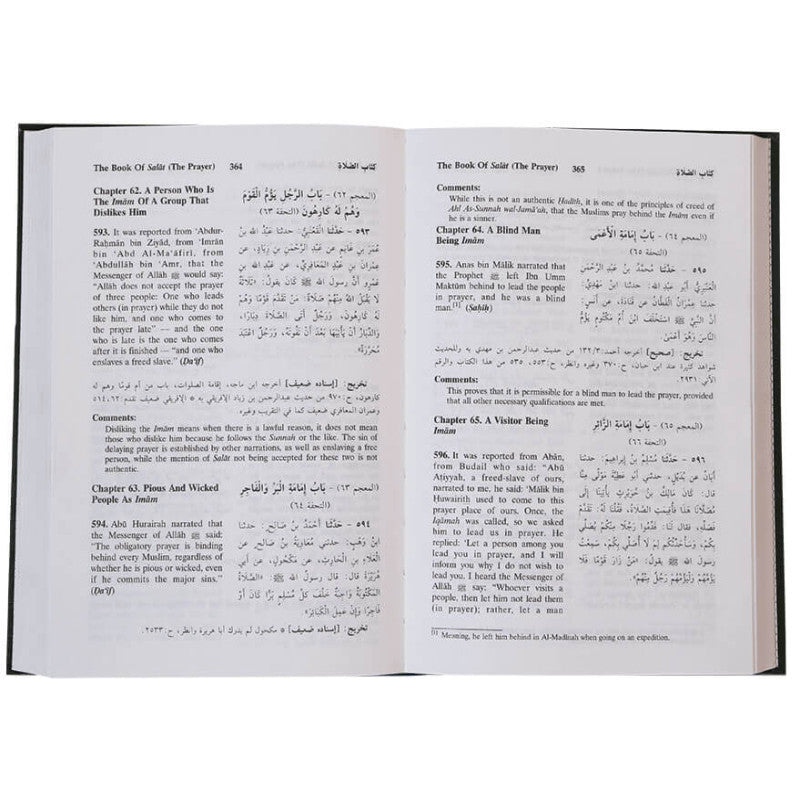 The Book Of Salāt (The Prayer) 364 كتاب الصلاة
Chapter 62. A Person Who Is
The Imām Of A Group That
Dislikes Him
(المعجم ٦٢) - بَابُ الرَّجُلِ يَؤُمُّ الْقَوْمَ
وَهُمْ لَهُ كَارِهُونَ (التحفة ٦٣)
593. It was reported from ‘Abdur-
Raḥmān bin Ziyād, from ‘Imrān
bin ‘Abd Al-Ma‘āfirī, from
‘Abdullāh bin ‘Amr, that the
Messenger of Allāh ﷺ would say:
“Allāh does not accept the prayer
of three people: One who leads
others (in prayer) while they do not
like him, and one who comes to
the prayer late” — and the one
who is late is the one who comes
after it is finished — “and one who
enslaves a freed slave.” (Ḍa‘īf)
٥٩٣ - حَدَّثَنَا الْقَعْنَبِيُّ: حدثنا عَبْدُ الله بنُ
عُمَرَ بنِ غَانِمٍ عن عَبْدِ الرَّحْمَنِ بنِ زِيَادٍ، عن
عِمْرَانَ بنِ عَبْدٍ المَعَافِرِيِّ، عن عَبْدِ الله بنِ
عَمْرٍو أنَّ رَسُولَ الله ﷺ كَانَ يَقُولُ: «ثَلَاثَةٌ
لَا يَقْبَلُ الله مِنْهُمْ صَلَاةً: مَنْ تَقَدَّمَ قَوْمًا وَهُمْ
لَهُ كَارِهُونَ، وَرَجُلٌ أَتَى الصَّلَاةَ دِبَارًا،
وَالدِّبَارُ أنْ يَأْتِيَهَا بَعْدَ أنْ تَفُوتَهُ، وَرَجُلٌ اعْتَبَدَ
مُحَرَّرَةً».
تخريج: [إسناده ضعيف] أخرجه ابن ماجه، إقامة الصلوات، باب من أم قومًا وهم له
كارهون، ح: ٩٧٠ من حديث عبدالرحمن بن زياد الإفريقي به * الإفريقي ضعيف تقدم: ٦٢، ٥١٤
وعمران المعافري ضعيف كما في التقريب وغيره.
Comments:
Disliking the Imām means when there is a lawful reason, it does not mean
those who dislike him because he follows the Sunnah or the like. The sin of
delaying prayer is established by other narrations, as well as enslaving a free
person, while the mention of Salāt not being accepted for these two is not
authentic.
Chapter 63. Pious And Wicked
People As Imām
(المعجم ٦٣) - بَابُ إِمَامَةِ الْبَرِّ وَالْفَاجِرِ
(التحفة ٦٤)
594. Abū Hurairah narrated that
the Messenger of Allāh ﷺ said:
“The obligatory prayer is binding
behind every Muslim, regardless of
whether he is pious or wicked, even
if he commits the major sins.”
(Ḍa‘īf)
٥٩٤ - حَدَّثَنَا أَحْمَدُ بنُ صَالِحٍ: حدثنا
ابنُ وَهْبٍ: حدثني مُعَاوِيَةُ بنُ صَالِحٍ عن
الْعَلَاءِ بنِ الْحَارِثِ، عن مَكْحُولٍ، عن أَبي
هُرَيْرَةَ قال: قال رسولُ الله ﷺ: «الصَّلَاةُ
المَكْتُوبَةُ وَاجِبَةٌ خَلْفَ كلِّ مُسْلِمٍ بَرًّا كَانَ أَوْ
فَاجِرًا وَإنْ عَمِلَ الْكَبَائِرَ».
تخريج: [إسناده ضعيف] * مكحول لم يدرك أبا هريرة وانظر، ح: ٢٥٣٣.
The Book Of Salāt (The Prayer) 365 كتاب الصلاة
Comments:
While this is not an authentic Ḥadīth, it is one of the principles of creed of
Ahl As-Sunnah wal-Jamā‘ah, that the Muslims pray behind the Imām even if
he is a sinner.
Chapter 64. A Blind Man
Being Imām
(المعجم ٦٤) - بَابُ إِمَامَةِ الْأَعْمَى
(التحفة ٦٥)
595. Anas bin Mālik narrated that
the Prophet ﷺ left Ibn Umm
Maktūm behind to lead the people
in prayer, and he was a blind
man.[1] (Saḥīḥ)
٥٩٥ - حَدَّثَنا مُحمَّدُ بنُ عَبْدِ الرَّحْمَنِ
الْعَنْبَرِيُّ أَبو عَبْدِ الله: حدثنا ابنُ مَهْدِيٍّ:
حدثنا عِمْرَانُ الْقَطَّانُ عن قَتَادَةَ، عن أَنَسٍ:
أنَّ النَّبيَّ ﷺ اسْتَخْلَفَ ابنَ أُمِّ مَكْتُومٍ يَؤُمُّ
النَّاسَ وَهُوَ أَعْمَى.
تخريج: [صحيح] أخرجه أحمد: ٣/ ١٣٢ من حديث عبدالرحمن بن مهدي به وللحديث
شواهد كثيرة عند ابن حبان، ح: ٣٧٠ وغيره وانظر، ح: ٥٥٣، ٥٣٥ من هذا الكتاب والرقم
الآتي: ٢٩٣١.
Comments:
This proves that it is permissible for a blind man to lead the prayer, provided
that all other necessary qualifications are met.
Chapter 65. A Visitor Being
Imām
(المعجم ٦٥) - بَابُ إِمَامَةِ الزَّائِرِ
(التحفة ٦٦)
596. It was reported from Abān,
from Budail who said: “Abū
Atiyyah, a freed-slave of ours,
narrated to me, he said: ‘Mālik bin
Ḥuwairith used to come to this
prayer place of ours. Once, the
Iqāmah was called, so we asked
him to lead us in prayer. He
replied: ‘Let a person among you
lead you in prayer, and I will
inform you why I do not wish to
lead you. I heard the Messenger of
Allāh ﷺ say: “Whoever visits a
people, then let him not lead them
(in prayer); rather, let a man
٥٩٦ - حَدَّثَنا مُسْلِمُ بنُ إبراهِيمَ: حدثنا
أَبَانُ عن بُدَيْلٍ، حدثني أبُو عَطِيَّةَ مَوْلًى مِنَّا
قال: كَانَ مَالِكُ بنُ حُوَيْرِثٍ يَأْتِينَا إِلَى
مُصَلَّانَا هَذَا فَأُقِيمَتِ الصَّلَاةُ، فَقُلْنَا لَهُ: تَقَدَّمْ
فَصَلِّهْ، فقال لَنَا: قَدِّمُوا رَجُلًا مِنْكُم يُصَلِّي
بِكُم، وَسَأُحَدِّثُكُم لِمَ لَا أُصَلِّي بِكُم، سَمِعْتُ
رسولَ الله ﷺ يقولُ: «مَنْ زَارَ قَوْمًا فَلَا
يَؤُمَّهُمْ وَلْيَؤُمَّهُمْ رَجُلٌ مِنْهُمْ».
[1] Meaning, he left him behind in Al-Madīnah when going on an expedition.